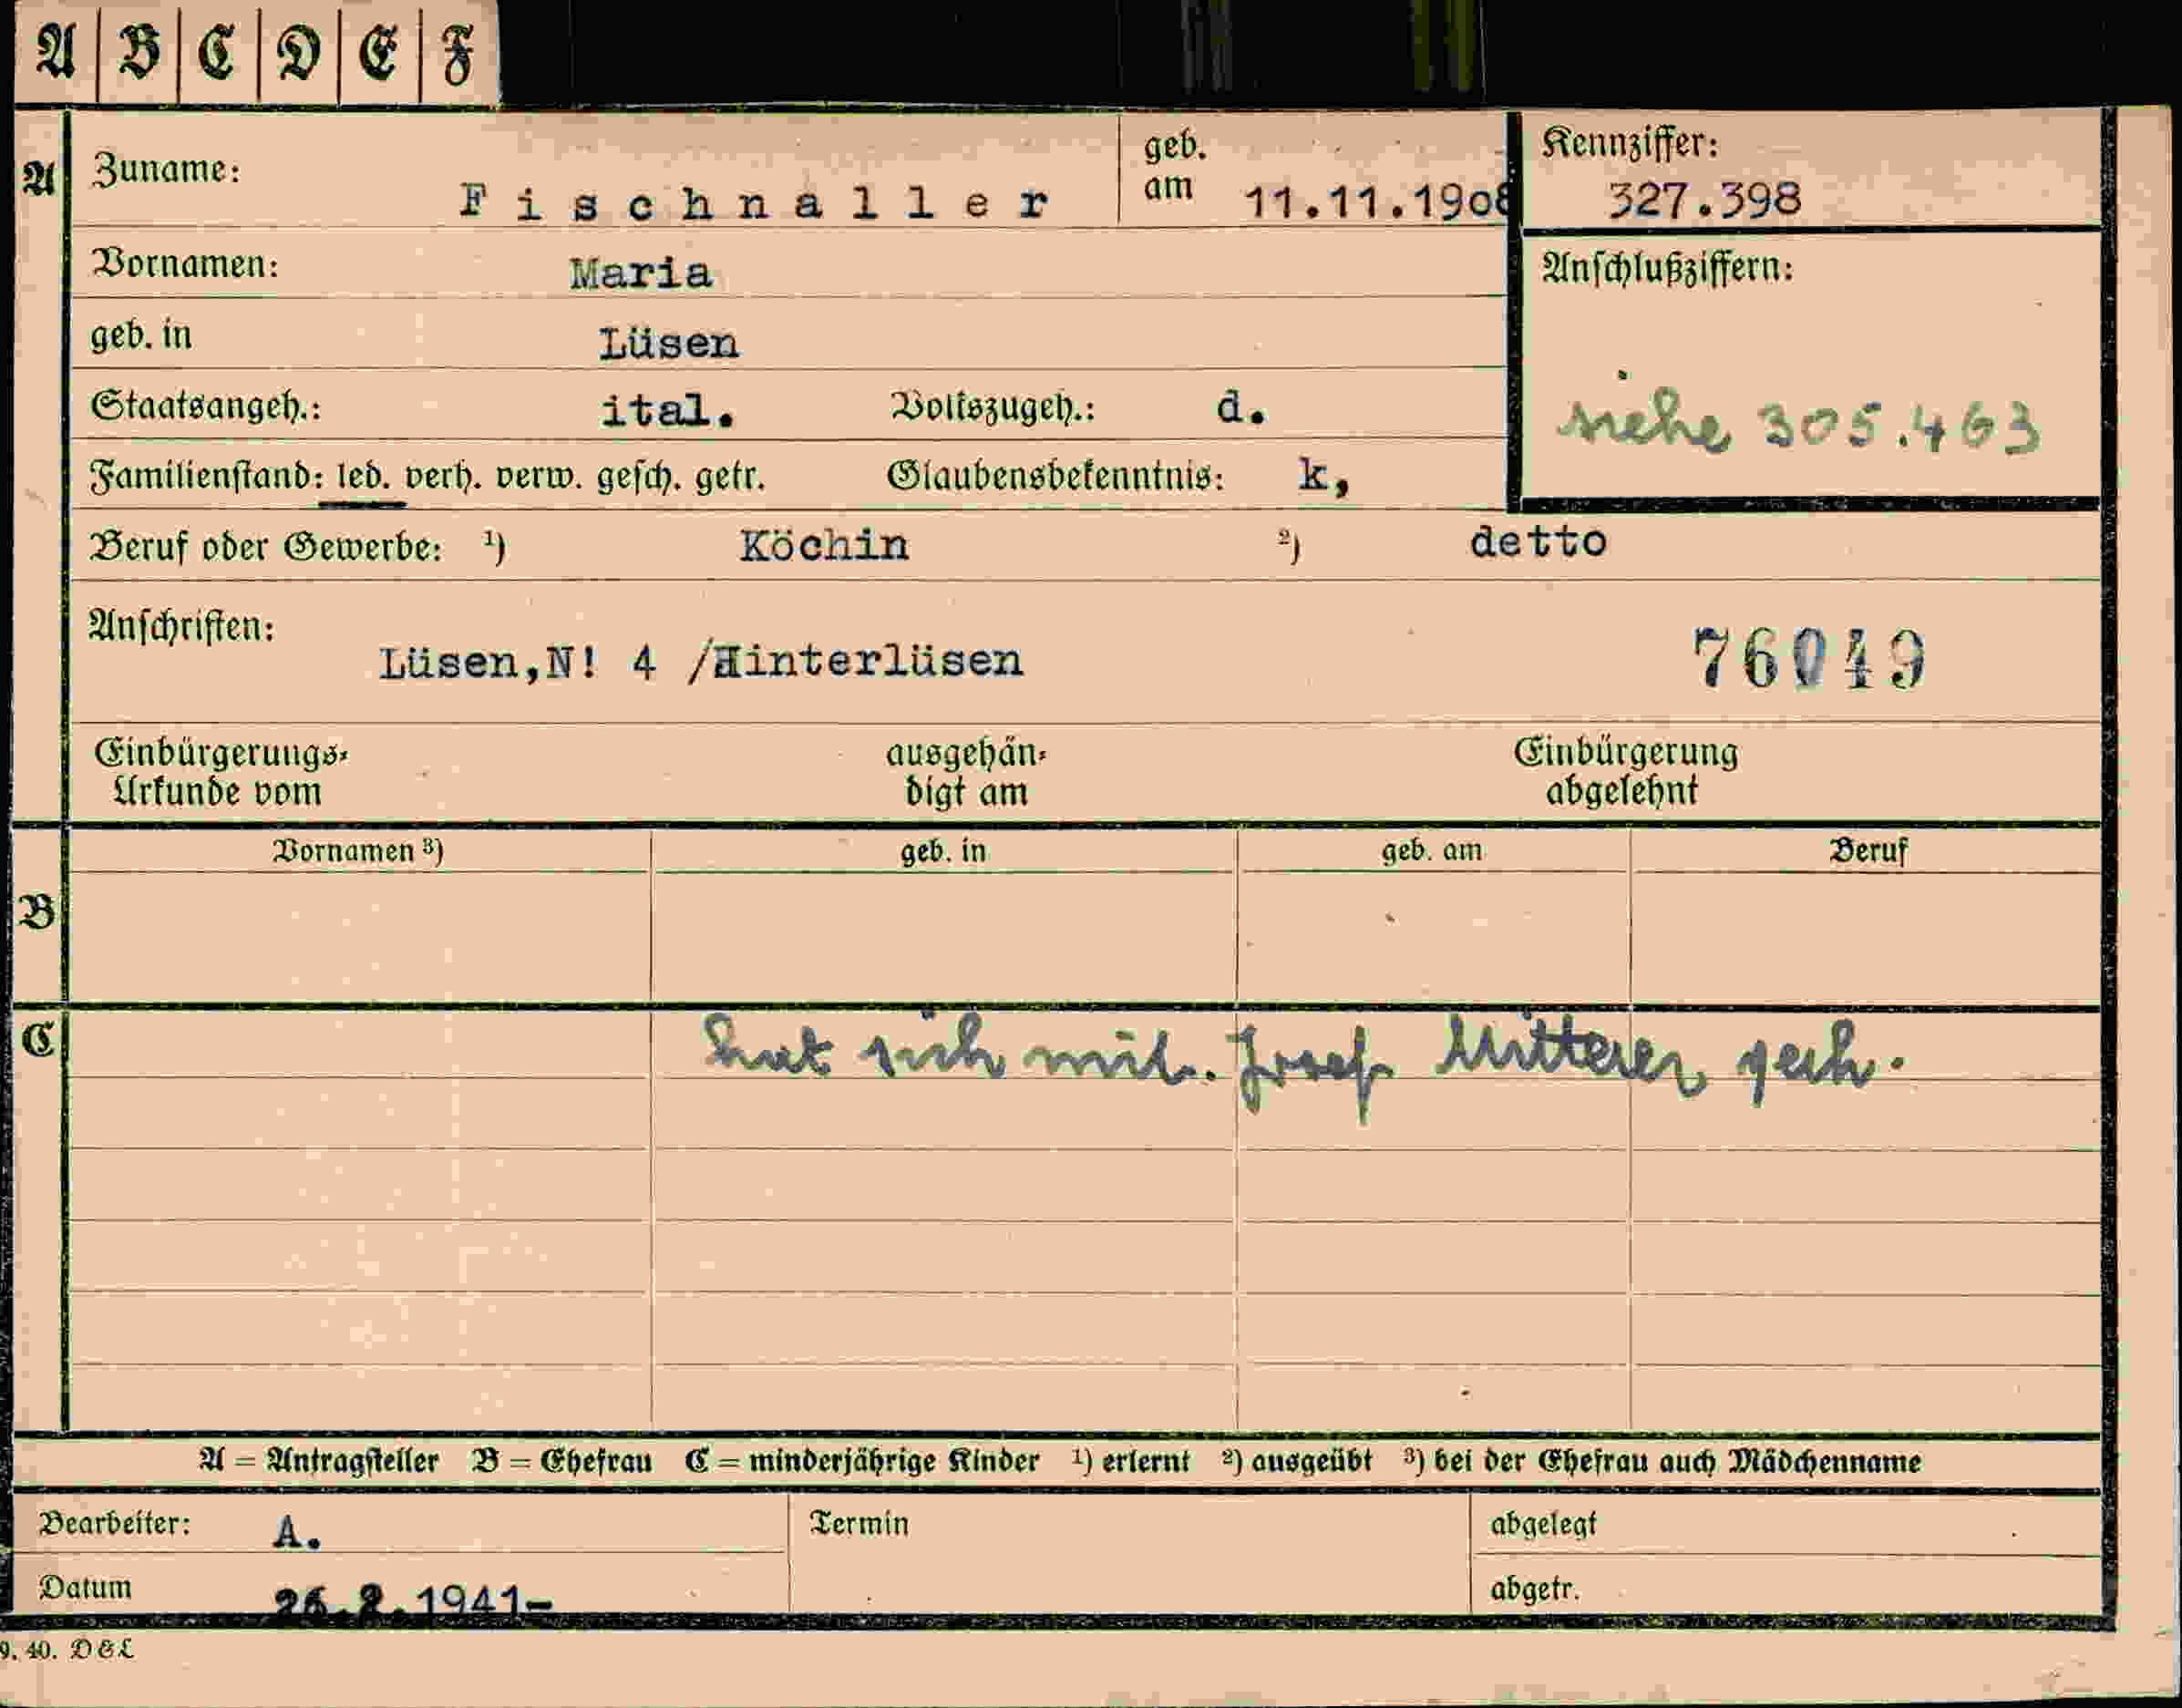 A B C D E F
A Zuname: Fischnaller geb. am 11.11.1908 Kennziffer: 327.398
Vornamen: Maria Anschlußziffern:
geb. in Lüsen
Staatsangeh.: ital. Volkszugeh.: d. siehe 305.463
Familienstand: led. verh. verw. gesch. getr. Glaubensbekenntnis: k,
Beruf oder Gewerbe: 1) Köchin 2) detto
Anschriften:
Lüsen,N! 4 /Hinterlüsen 76049
Einbürgerungs- ausgehän- Einbürgerung
Urkunde vom digt am abgelehnt
Vornamen 3) geb. in geb. am Beruf
B
C hat sich mit. Josef Mitterer
A = Antragsteller B = Ehefrau C = minderjährige Kinder 1) erlernt 2) ausgeübt 3) bei der Ehefrau auch Mädchenname
Bearbeiter: A. Termin abgelegt
Datum 26.2.1941- abgetr.
9. 40. D&L